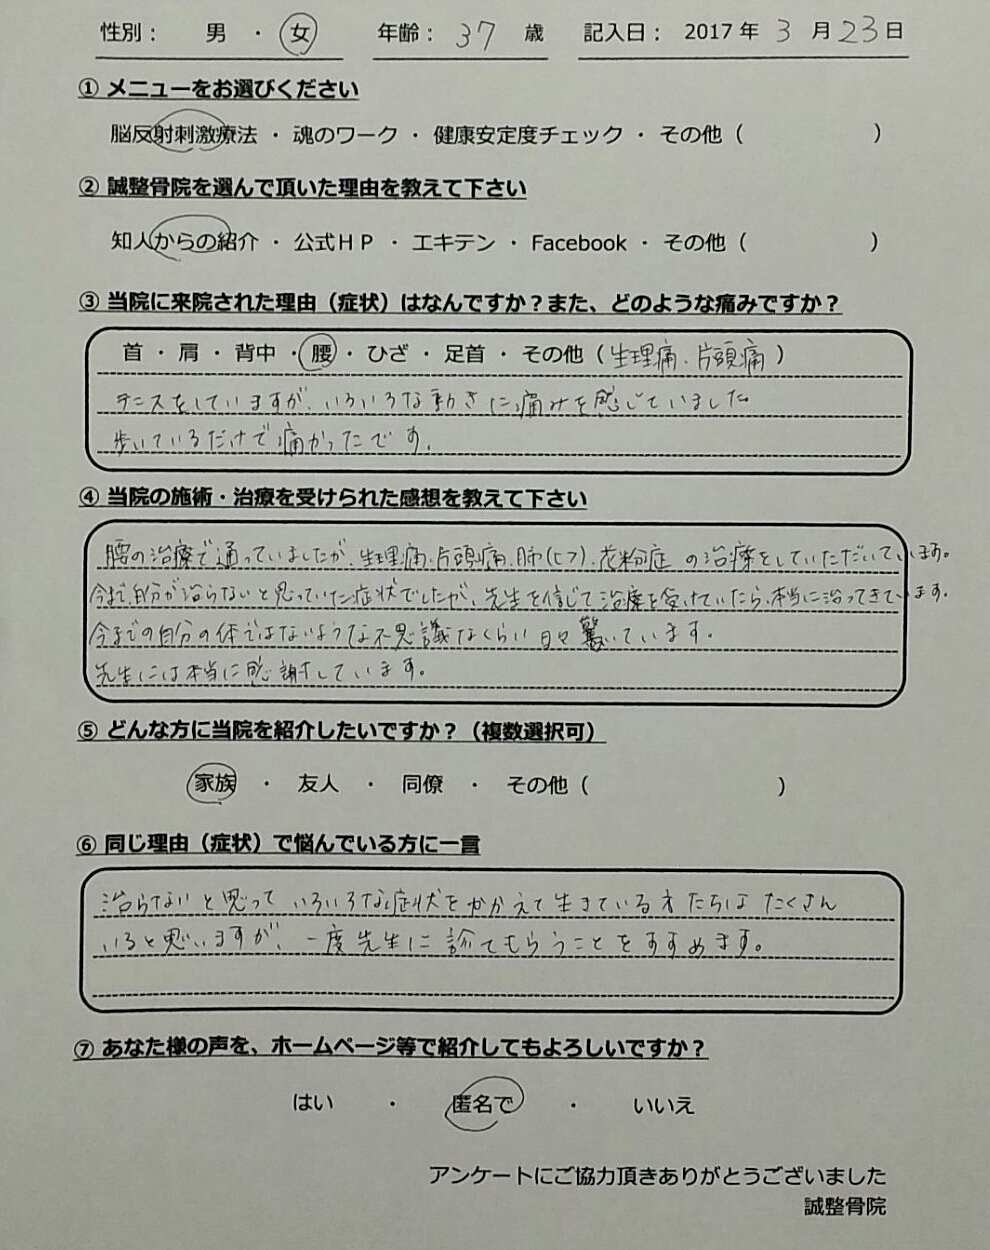 性別： 男 ・ 女 年齢： 37 歳 記入日： 2017 年 3 月 23 日
① メニューをお選びください
脳反射刺激療法 ・ 魂のワーク ・ 健康安定度チェック ・ その他（ ）
② 誠整骨院を選んで頂いた理由を教えて下さい
知人からの紹介 ・ 公式ＨＰ ・ エキテン ・ Facebook ・ その他（ ）
③ 当院に来院された理由（症状）はなんですか？また、どのような痛みですか？
首 ・ 肩 ・ 背中 ・ 腰 ・ ひざ ・ 足首 ・ その他（生理痛．片頭痛）
テニスをしていますが、いろいろな動きに痛みを感じていました
歩いているだけで痛かったです．
④ 当院の施術・治療を受けられた感想を教えて下さい
腰の治療で通っていましたが、生理痛．片頭痛．肺(ヒフ)．花粉症 の治療をしていただいています。
今まで、自分が治らないと思っていた症状でしたが、先生を信じて治療を受けていたら、本当に治ってきています．
今までの自分の体ではないような不思議なくらい日々驚いています．
先生には本当に感謝しています．
⑤ どんな方に当院を紹介したいですか？（複数選択可）
家族 ・ 友人 ・ 同僚 ・ その他（ ）
⑥ 同じ理由（症状）で悩んでいる方に一言
治らないと思って いろいろな症状をかかえて生きている方たちは たくさん
いると思いますが、一度先生に診てもらうことをすすめます。
⑦ あなた様の声を、ホームページ等で紹介してもよろしいですか？
はい ・ 匿名で ・ いいえ
アンケートにご協力頂きありがとうございました
誠整骨院